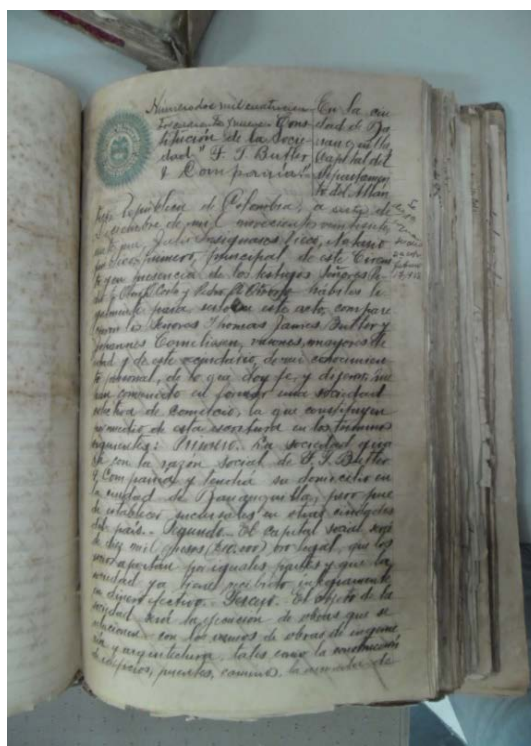 Numero dos mil cuatrocien
tos cincuenta y nueve. Cons
titución de la Socie
dad "F. J. Butler
& Compañia."
En la ciu
dad de Ba
rranquilla
Capital del
Departamen
to del Atlán
tico, República de Colombia, a siete de
de mil novecientos veintiuno,
ante mi, Julio Insignares Notario
primero, principal de este Circui
to y en presencia de los testigos Señores
y Pedro hábiles le
galmente para este acto, compare
cieron los Señores Thomas James Butler y
Johannes Cornelissen, varones, mayores de
edad y de este vecindario, de mi conocimien
to personal, de lo que doy fe, y dijeron: que
han convenido en formar una sociedad
colectiva de comercio, la que constituyen
por medio de esta escritura en los términos
siguientes: Primero. La sociedad gira
rá con la razón social de F. J. Butler
& Compañia y tendrá su domicilio en
la ciudad de Barranquilla, pero pue
de establecer sucursales en otras ciudades
del país. Segundo. El capital social será
de diez mil pesos ($10.000) oro legal, que los
socios aportan por iguales partes y que la
sociedad ya tiene recibido íntegramente
en dinero efectivo. Tercero. El objeto de la
sociedad será la ejecución de obras que se
relacionen con los ramos de obras de ingenie
ría y arquitectura, tales como la construcción
de edificios, puentes, caminos, la de